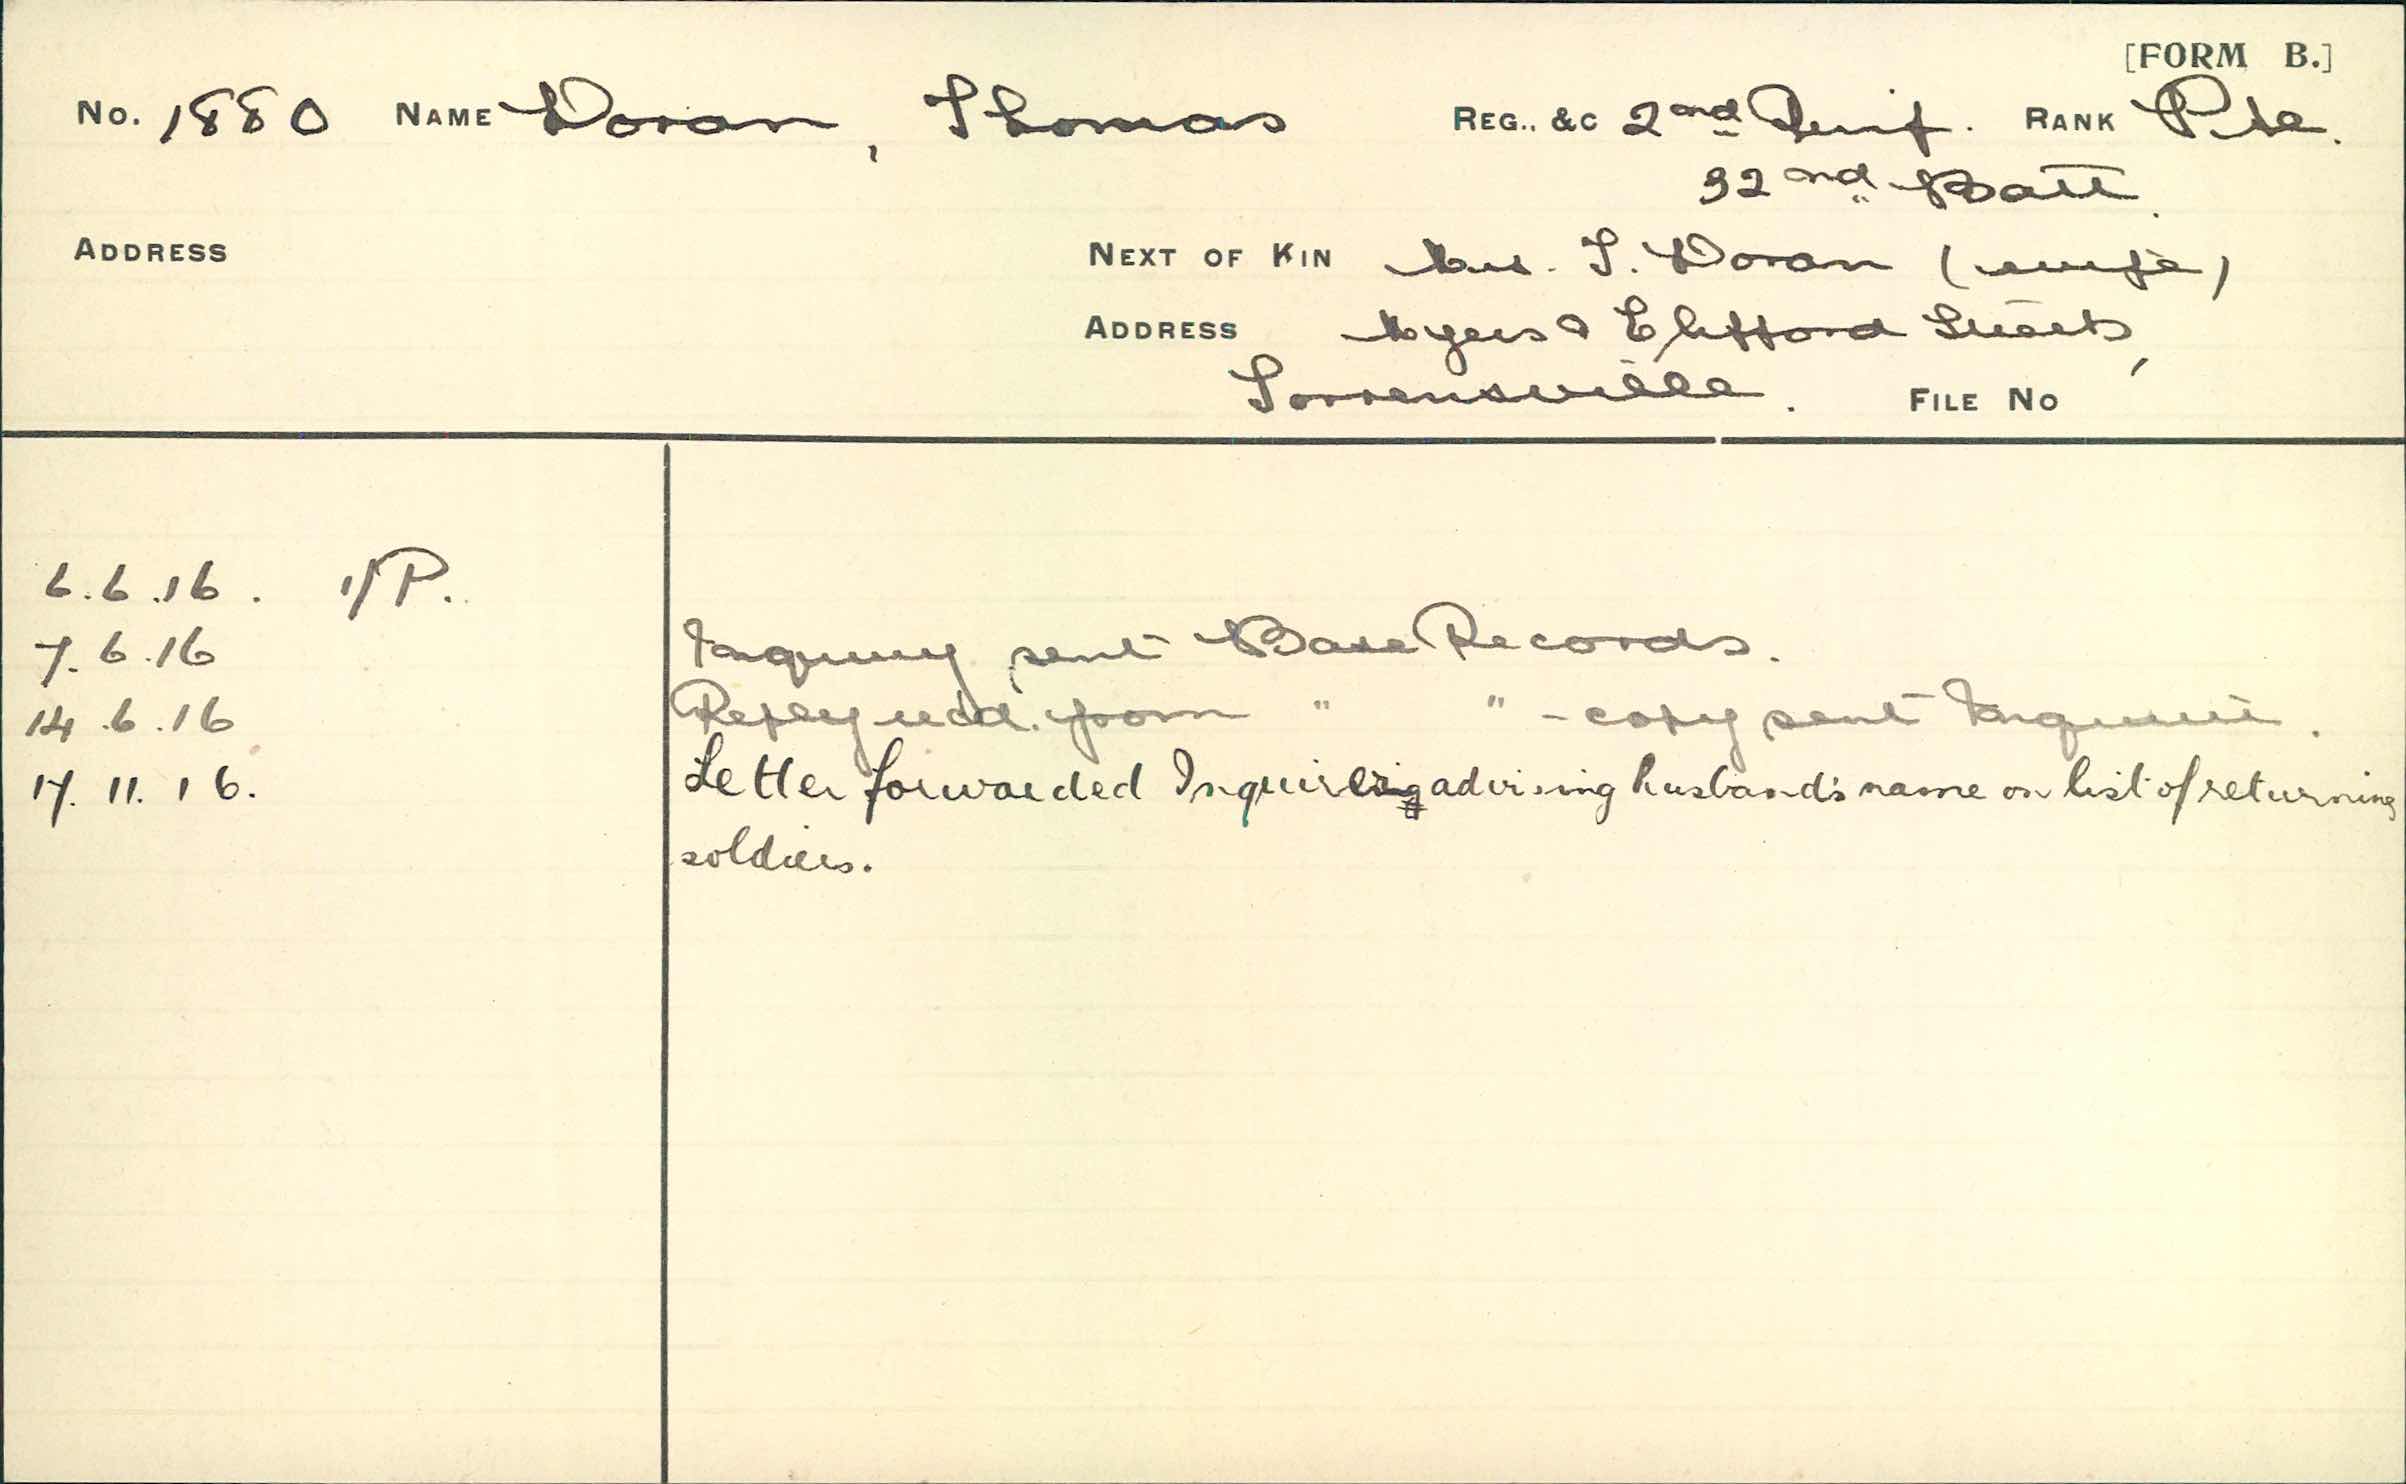 [FORM B.]
No. 1880 NAME Doran, Thomas REG., &C 2nd Reinf. RANK Pte.
32nd Batt.
ADDRESS NEXT OF KIN Mrs. T. Doran (wife)
ADDRESS Myers & Clifford Streets,
Torrensville. FILE NO
6.6.16. I/P.
7.6.16 Inquiry sent Base Records.
14.6.16 Reply recd. from " " - copy sent Inquirer.
17.11.16. Letter forwarded Inquirer advising husband's name on list of returning
soldiers.